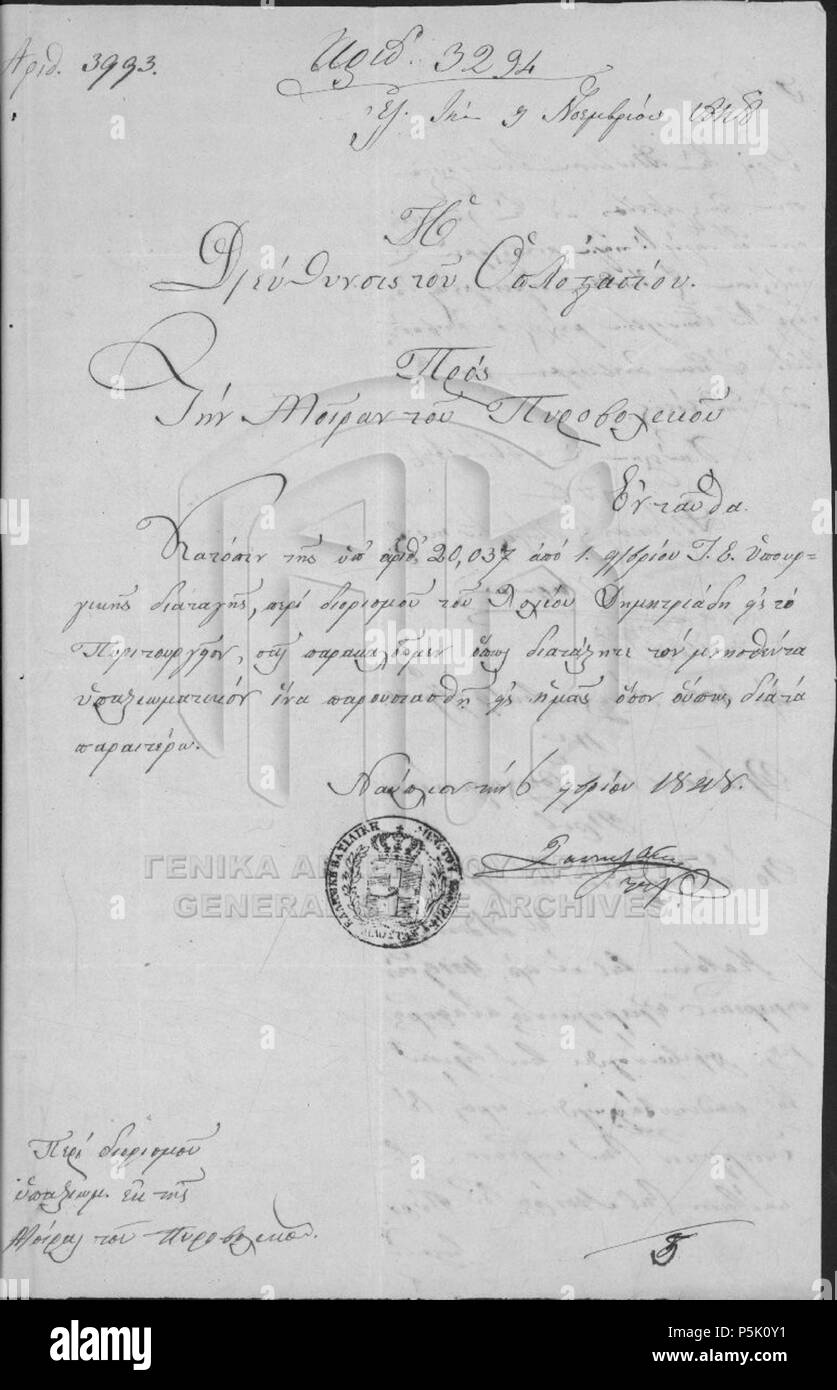 Αριθ. 3993.
Αριθ. 3294
Ἐλ. τὴν 9 Νοεμβρίου 1848
Ἡ
Διεύθυνσις τοῦ Ὁπλοστασίου.
Πρὸς
Τὴν Μοῖραν τοῦ Πυροβολικοῦ
Ἐνταῦθα.
Κατόπιν τῆς ὑπ' ἀριθ. 20,037 ἀπὸ 1. 9/βρίου Ἰ. Ἔ. Ὑπουρ-
γικῆς διαταγῆς, περὶ διορισμοῦ τοῦ Λοχίου Δημητριάδη εἰς τὸ
Πυριτουργεῖον, σᾶς παρακαλοῦμεν ὅπως διατάξητε τὸν μνησθέντα
ὑπαξιωματικὸν ἵνα παρουσιασθῇ εἰς ἡμᾶς ὅσον οὔπω, διὰ τὰ
παραιτέρω.
Ναύπλιον τὴν 6 9βρίου 1848.
ΓΕΝΙΚΑ ΑΡΧΕΙΑ ΤΟΥ ΚΡΑΤΟΥΣ
GENERAL STATE ARCHIVES
Περὶ διορισμοῦ
ὑπαξιωμ. ἐκ τῆς
Μοίρας τοῦ Πυροβολικοῦ.
alamy
Image ID: P5K0Y1
www.alamy.com